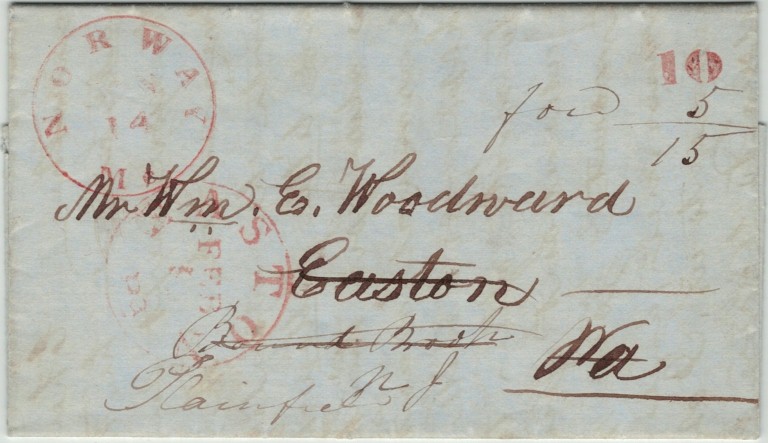 NORWAY
14
10
for 5
15
Mr Wm. E. Woodward
EASTON
FEB
Pa
Easton
Bound Brook
Pa
Plainfield N. J.